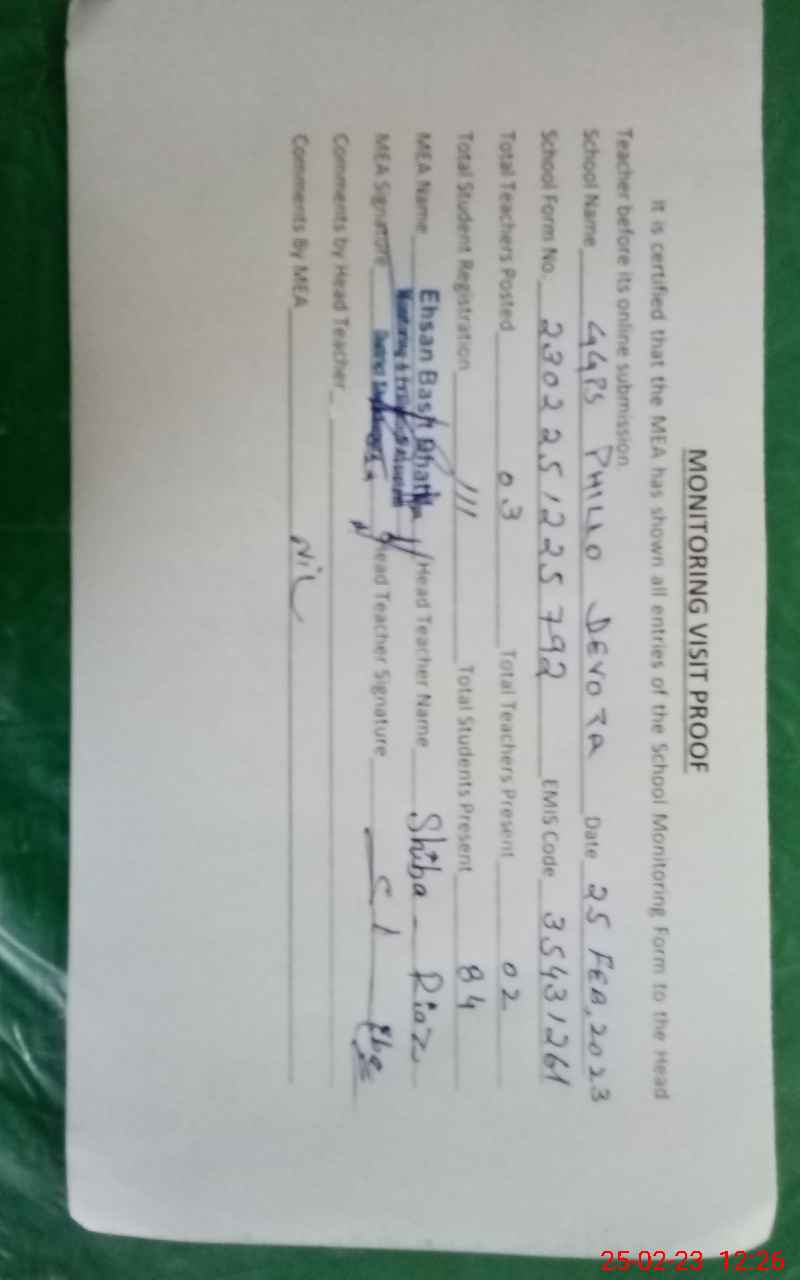 MONITORING VISIT PROOF
It is certified that the MEA has shown all entries of the School Monitoring Form to the Head
Teacher before its online submission.
School Name GGPS PHILLO DEVOTA Date 25 FEB, 2023
School Form No. 2302251225792 EMIS Code 35431261
Total Teachers Posted 03 Total Teachers Present 02
Total Student Registration 111 Total Students Present 84
MEA Name Ehsan Head Teacher Name Shiba Riaz
Monitoring &
MEA Signature District Head Teacher Signature
Comments by Head Teacher
Comments By MEA Nil
25-02-23 12:26